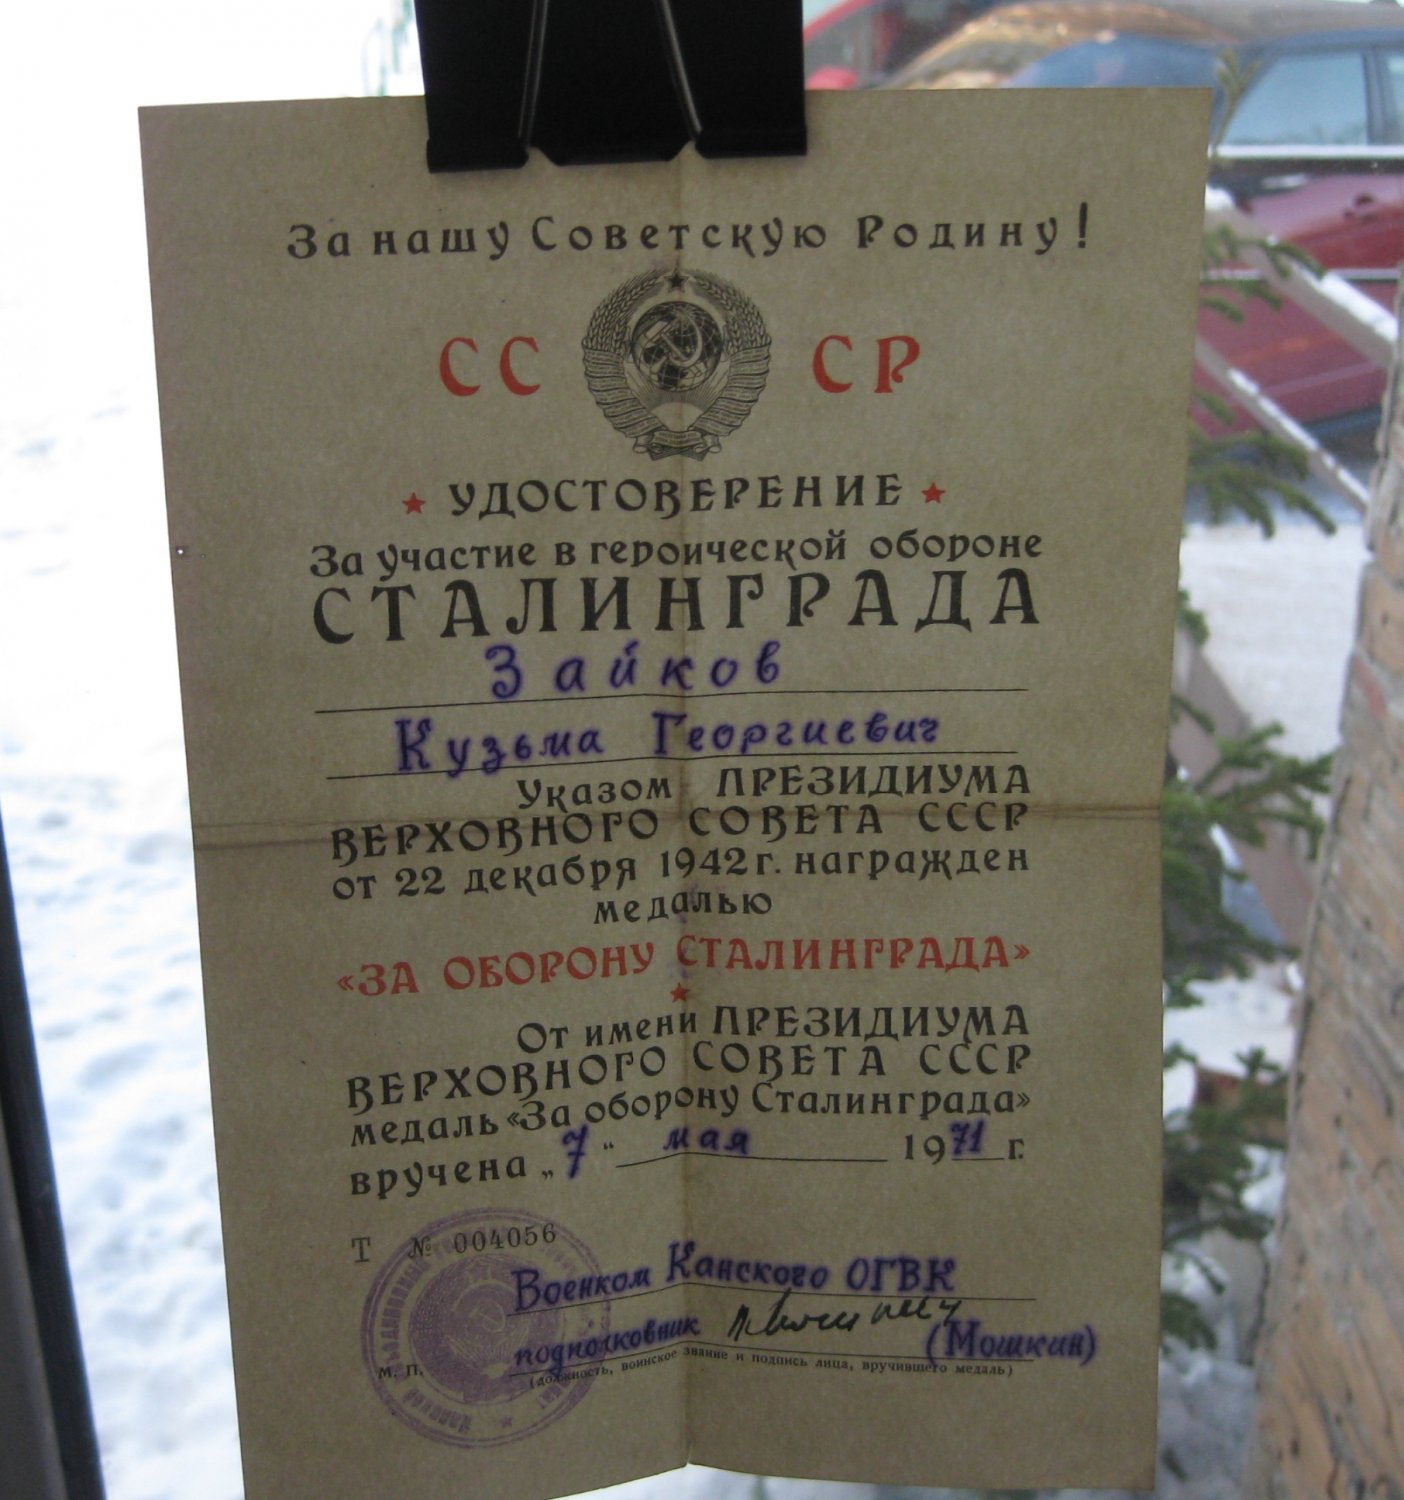 За нашу Советскую Родину!
СССР
УДОСТОВЕРЕНИЕ
За участие в героической обороне
СТАЛИНГРАДА
Зайков
Кузьма Георгиевич
Указом ПРЕЗИДИУМА
ВЕРХОВНОГО СОВЕТА СССР
от 22 декабря 1942 г. награжден
медалью
«ЗА ОБОРОНУ СТАЛИНГРАДА»
От имени ПРЕЗИДИУМА
ВЕРХОВНОГО СОВЕТА СССР
медаль «За оборону Сталинграда»
вручена „7“ мая 1971 г.
Т № 004056
Военком Канского ОГВК
подполковник (Мошкин)
М. П.
(должность, воинское звание и подпись лица, вручившего медаль)